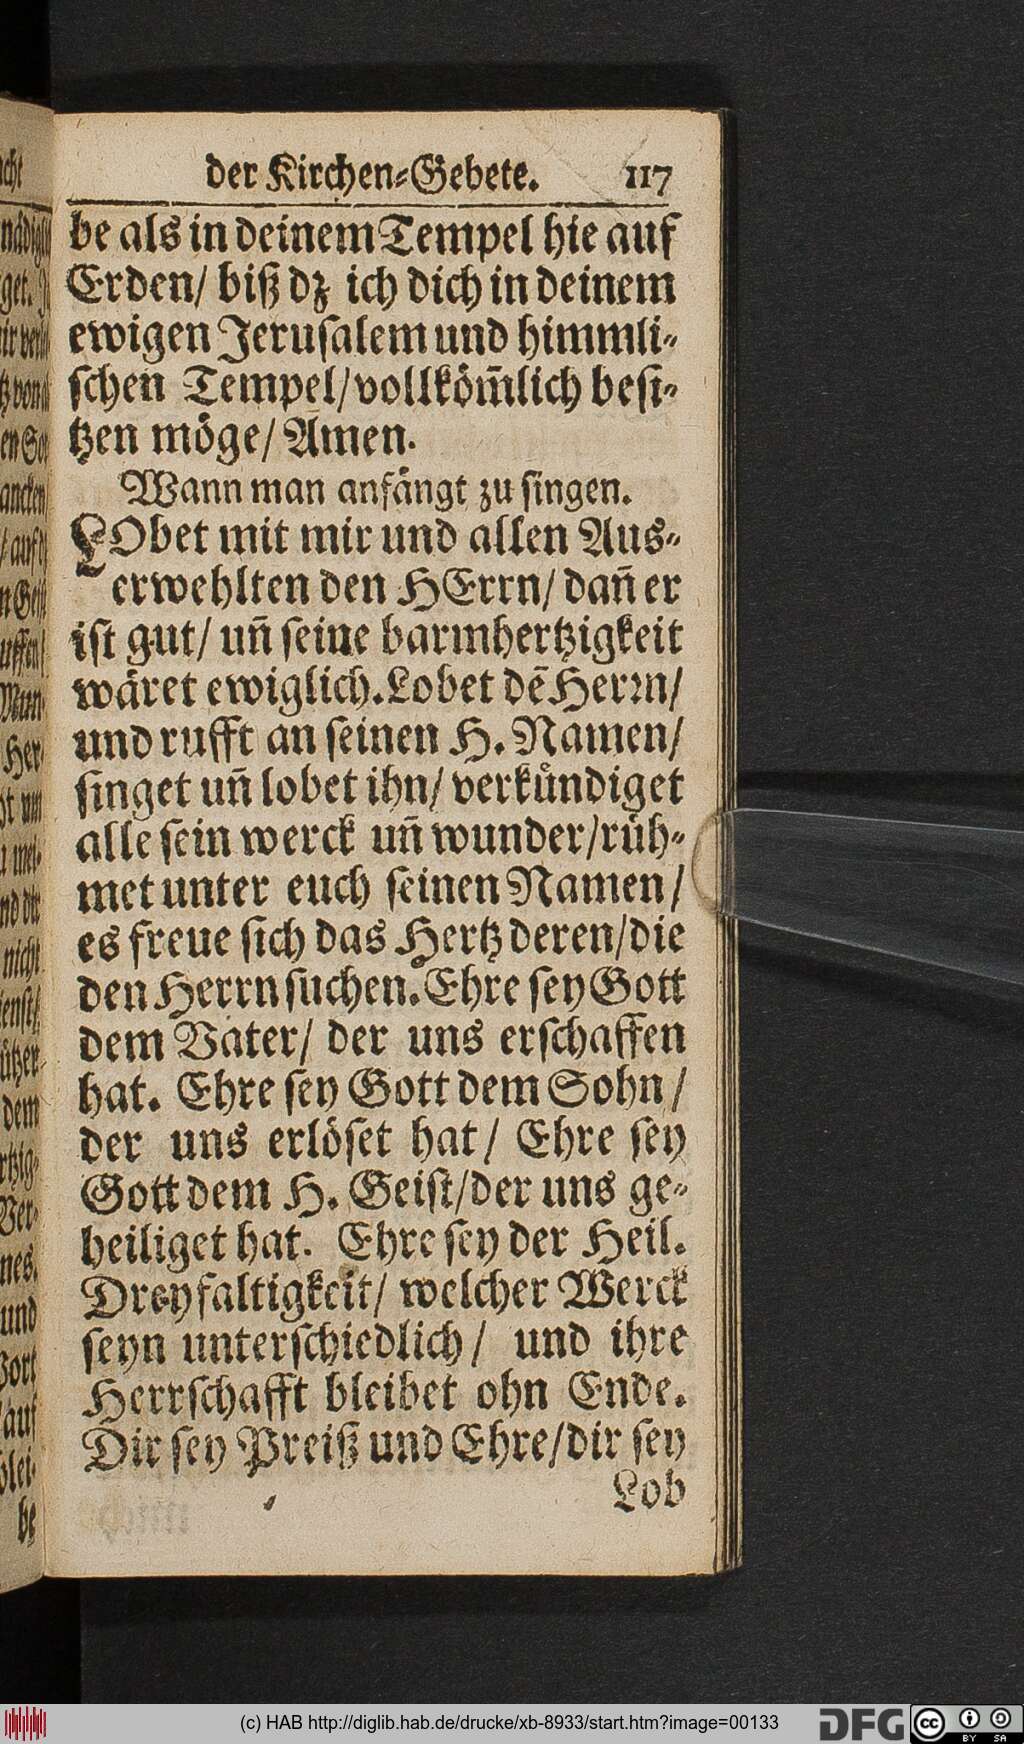 der Kirchen-Gebete. 117
be als in deinem Tempel hie auf
Erden/ biß dz ich dich in deinem
ewigen Jerusalem und himmli-
schen Tempel/ vollköm̃lich besi-
tzen möge/ Amen.
Wann man anfängt zu singen.
LObet mit mir und allen Aus-
erwehlten den HErrn/ dañ er
ist gut/ uñ seine barmhertzigkeit
wäret ewiglich. Lobet dẽ Herrn/
und rufft an seinen H. Namen/
singet uñ lobet ihn/ verkündiget
alle sein werck uñ wunder/ rüh-
met unter euch seinen Namen/
es freue sich das Hertz deren/ die
den Herrn suchen. Ehre sey Gott
dem Vater/ der uns erschaffen
hat. Ehre sey Gott dem Sohn/
der uns erlöset hat/ Ehre sey
Gott dem H. Geist/ der uns ge-
heiliget hat. Ehre sey der Heil.
Dreyfaltigkeit/ welcher Werck
seyn unterschiedlich/ und ihre
Herrschafft bleibet ohn Ende.
Dir sey Preiß und Ehre/ dir sey
Lob
(c) HAB http://diglib.hab.de/drucke/xb-8933/start.htm?image=00133
DFG cc BY SA